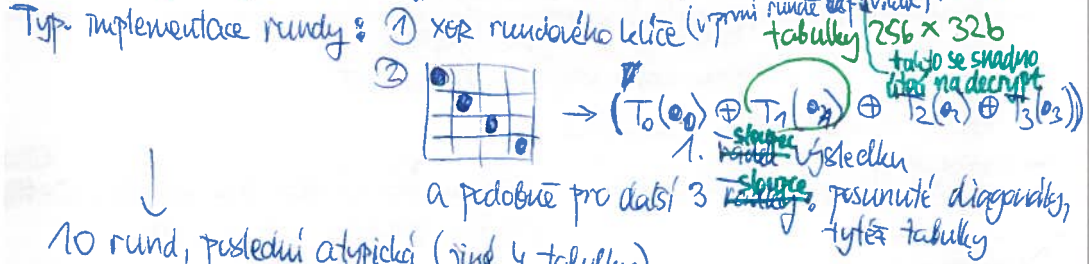 Typ. implementace rundy: ① XOR rundového klíče (v první rundě
tabulky 256 x 32b
takto se snadno
útočí na decrypt
② → (T₀(●₀) ⊕ T₁(●₁) ⊕ T₂(●₂) ⊕ T₃(●₃))
1. sloupec výsledku
a podobně pro další 3 sloupce: posunuté diagonály,
tytéž tabulky
10 rund, poslední atypická (jiné 4 tabulky)